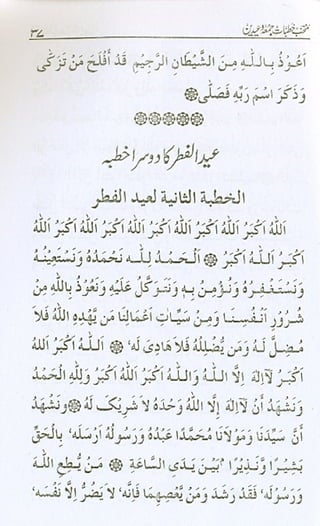 منتخب خطبات جمعہ و عیدین ۳۷
اَعُوْذُ بِاللّٰهِ مِنَ الشَّيْطَانِ الرَّجِيْمِ قَدْ اَفْلَحَ مَنْ تَزَكّٰى
وَذَكَرَ اسْمَ رَبِّهٖ فَصَلّٰى
عیدالفطر کا دوسرا خطبہ
الخطبة الثانية لعيد الفطر
اَللّٰهُ اَكْبَرُ اَللّٰهُ اَكْبَرُ اَللّٰهُ اَكْبَرُ اَللّٰهُ اَكْبَرُ اَللّٰهُ اَكْبَرُ اَللّٰهُ
اَكْبَرُ اَللّٰهُ اَكْبَرُ اَلْحَمْدُ لِلّٰهِ نَحْمَدُهٗ وَنَسْتَعِيْنُهٗ
وَنَسْتَغْفِرُهٗ وَنُؤْمِنُ بِهٖ وَنَتَوَكَّلُ عَلَيْهِ وَنَعُوْذُ بِاللّٰهِ مِنْ
شُرُوْرِ اَنْفُسِنَا وَمِنْ سَيِّاٰتِ اَعْمَالِنَا مَن يَّهْدِهِ اللّٰهُ فَلَا
مُضِلَّ لَهٗ وَمَن يُّضْلِلْهُ فَلَا هَادِىَ لَهٗ اَللّٰهُ اَكْبَرُ اَللّٰهُ
اَكْبَرُ لَآاِلٰهَ اِلَّا اللّٰهُ وَاللّٰهُ اَكْبَرُ اَللّٰهُ اَكْبَرُ وَلِلّٰهِ الْحَمْدُ
وَنَشْهَدُ اَنْ لَآاِلٰهَ اِلَّا اللّٰهُ وَحْدَهٗ لَا شَرِيْكَ لَهٗ وَنَشْهَدُ
اَنَّ سَيِّدَنَا وَمَوْلَانَا مُحَمَّدًا عَبْدُهٗ وَرَسُوْلُهٗ اَرْسَلَهٗ بِالْحَقِّ
بَشِيْرًا وَّنَذِيْرًا بَيْنَ يَدَىِ السَّاعَةِ مَنْ يُّطِعِ اللّٰهَ
وَرَسُوْلَهٗ فَقَدْ رَشَدَ وَمَنْ يَّعْصِهِمَا فَاِنَّهٗ لَا يَضُرُّ اِلَّا نَفْسَهٗ